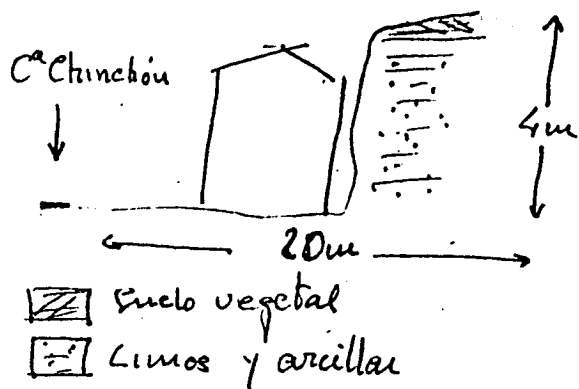 Cª Chinchón
4m
20m
Suelo vegetal
Limos y arcillas